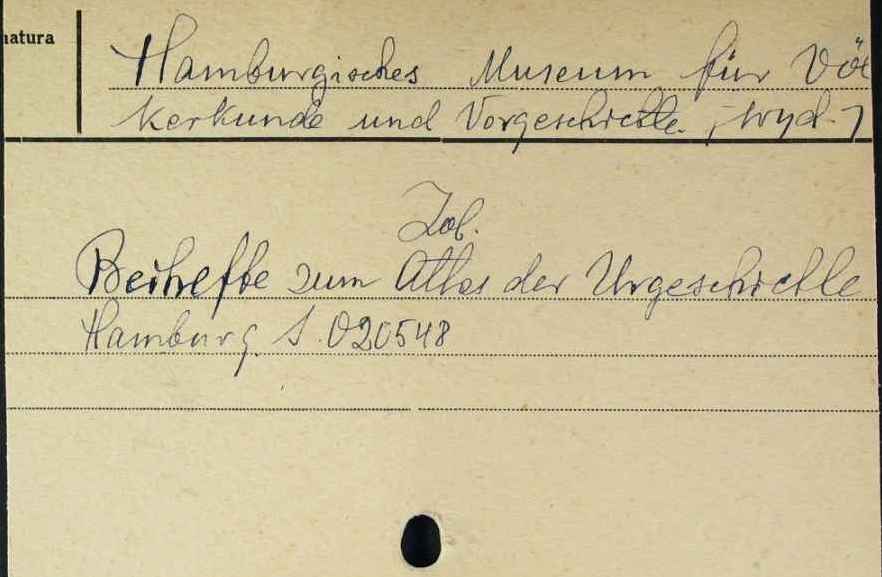 natura
Hamburgisches Museum für Völ
kerkunde und Vorgeschichte. ; wyd.
Zob.
Beihefte zum Atlas der Urgeschichte
Hamburg. S. 020548